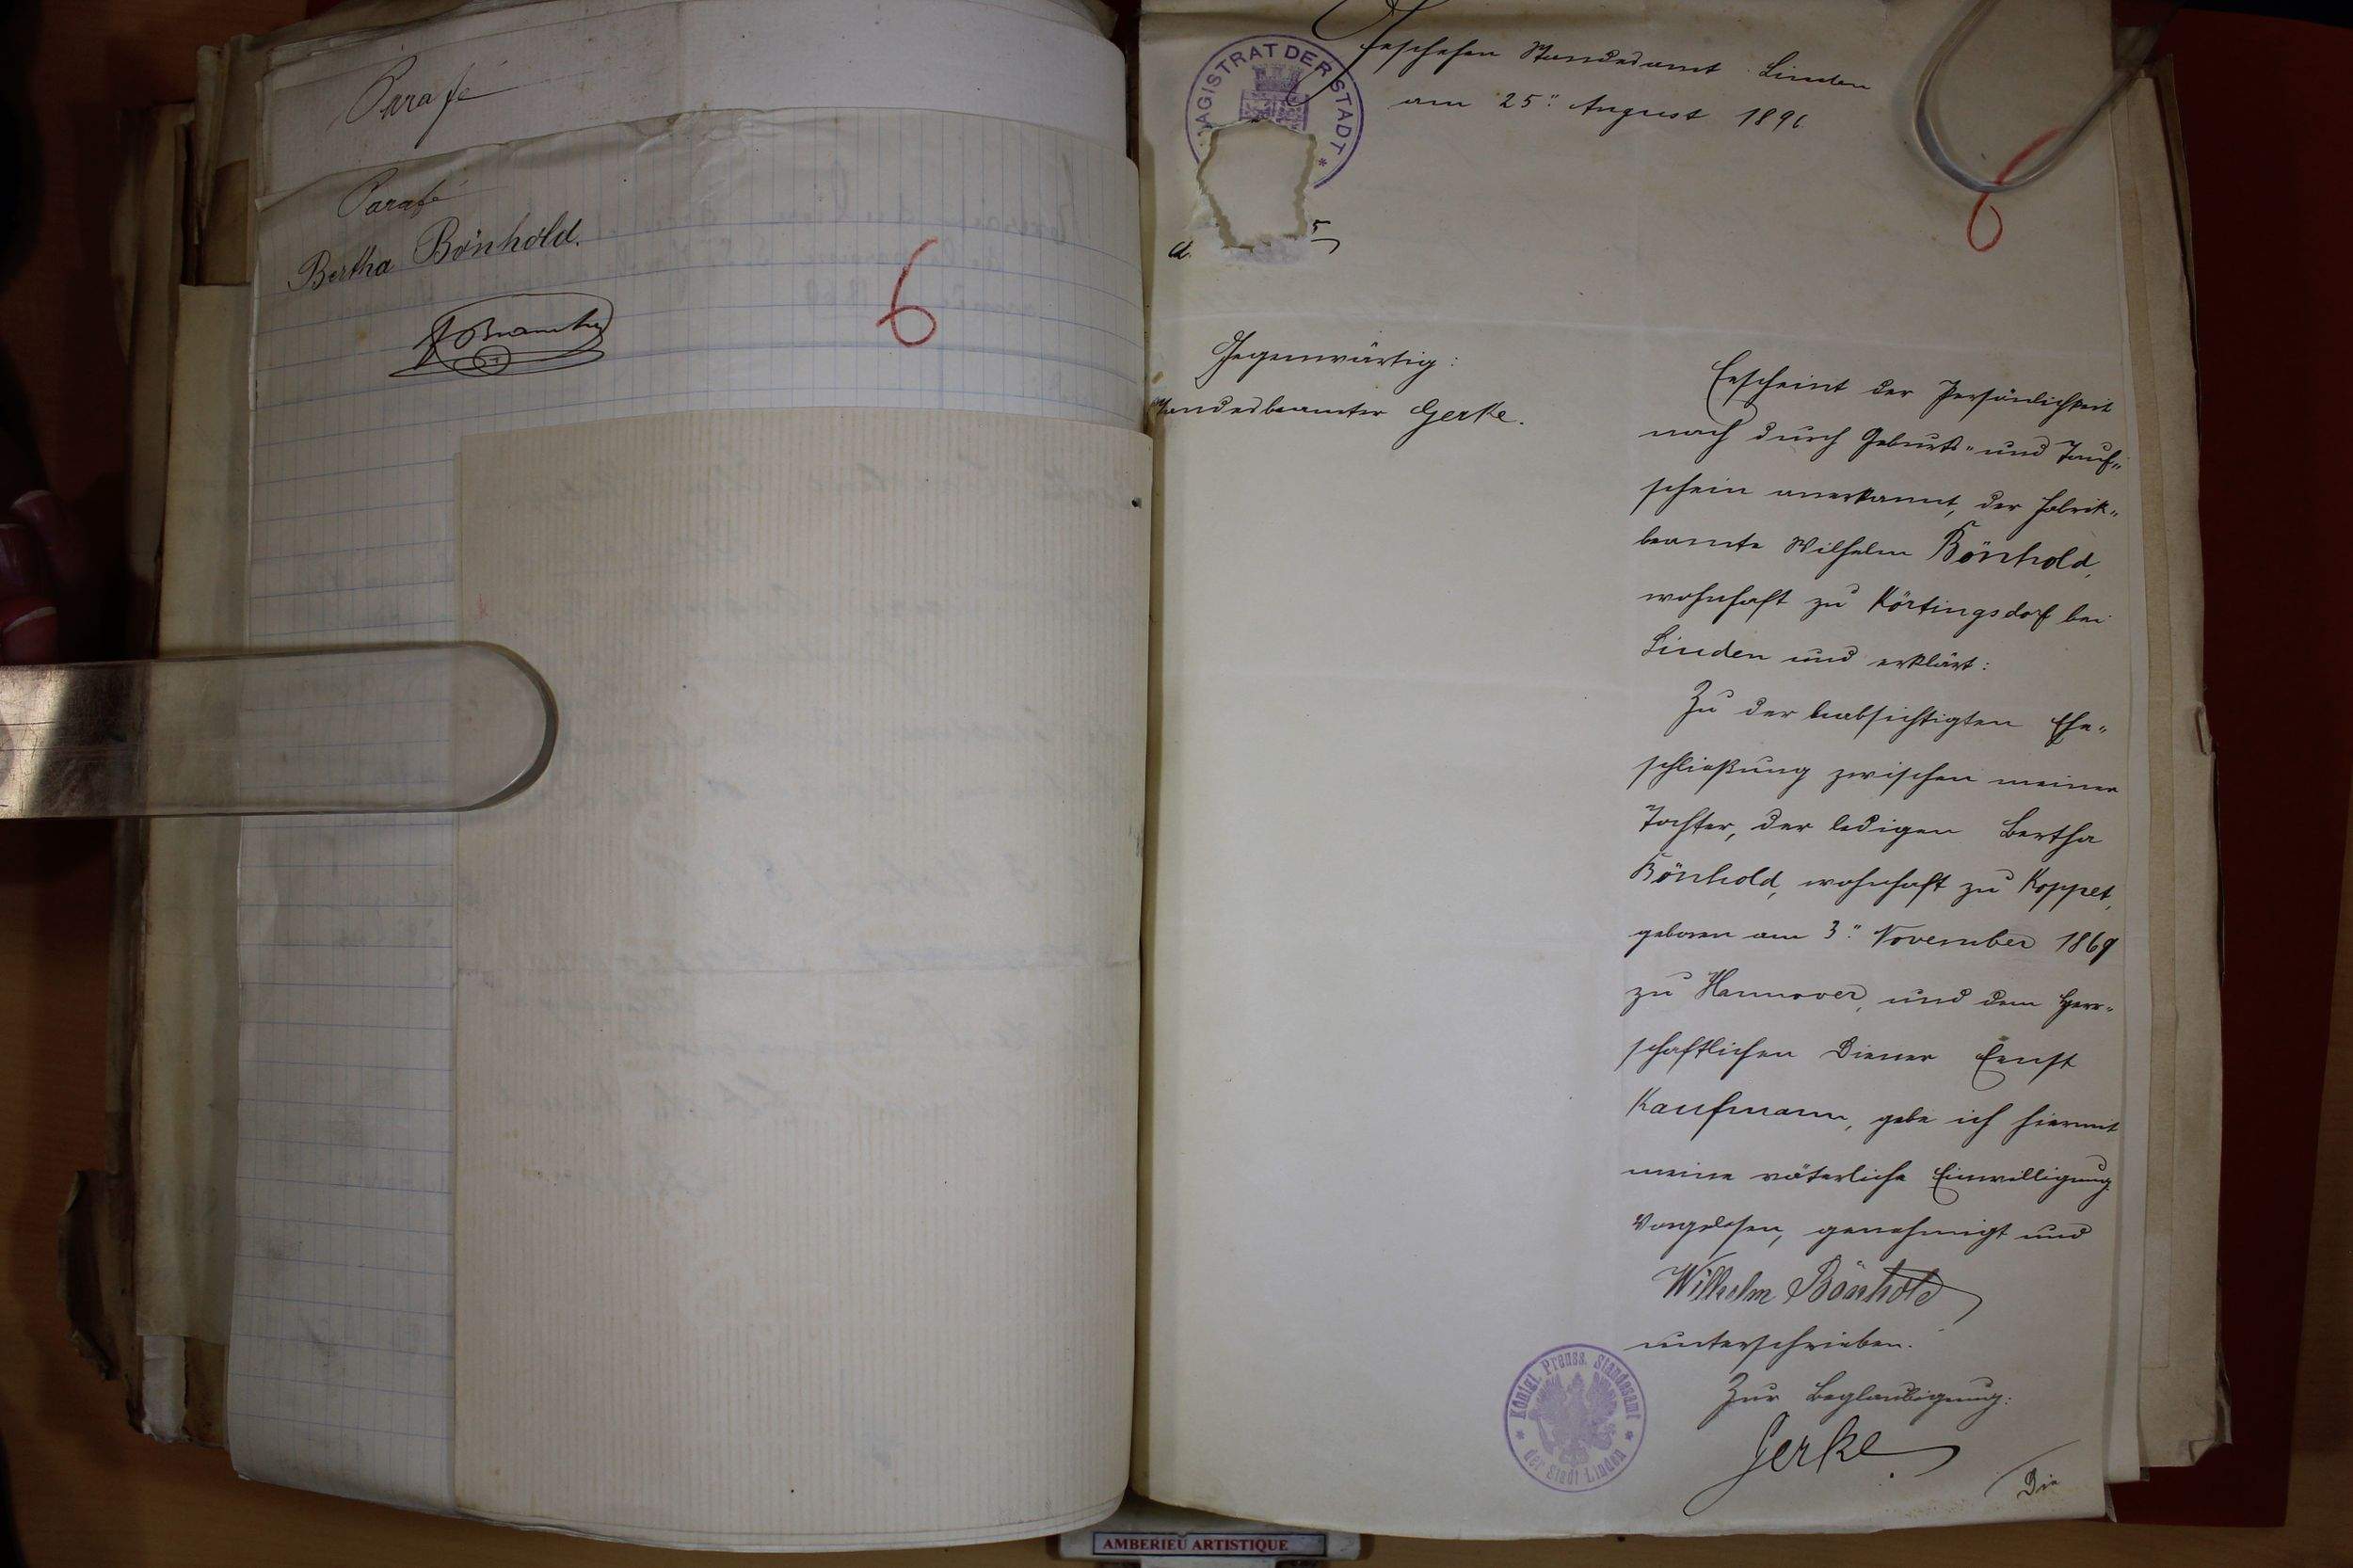 Parafé
Parafé
Bertha Bönhold.
6
MAGISTRAT DER STADT *
Geschehen Standesamt Linden
am 25." August 1896.
6
Gegenwärtig:
Standesbeamter Gerke.
Erscheint der Persönlichkeit
nach durch Geburts- und Tauf-
schein anerkannt, der Fabrik-
beamte Wilhelm Bönhold,
wohnhaft zu Körtingsdorf bei
Linden und erklärt:
Zu der beabsichtigten Ehe-
schließung zwischen meiner
Tochter, der ledigen Bertha
Bönhold, wohnhaft zu Koppet,
geboren am 3." November 1869
zu Hannover, und dem herr-
schaftlichen Diener Ernst
Kaufmann, gebe ich hiermit
meine väterliche Einwilligung.
Vorgelesen, genehmigt und
Wilhelm Bönhold
unterschrieben.
Zur Beglaubigung:
Gerke
Königl. Preuss. Standesamt * der Stadt Linden *
Die
AMBERIEU ARTISTIQUE